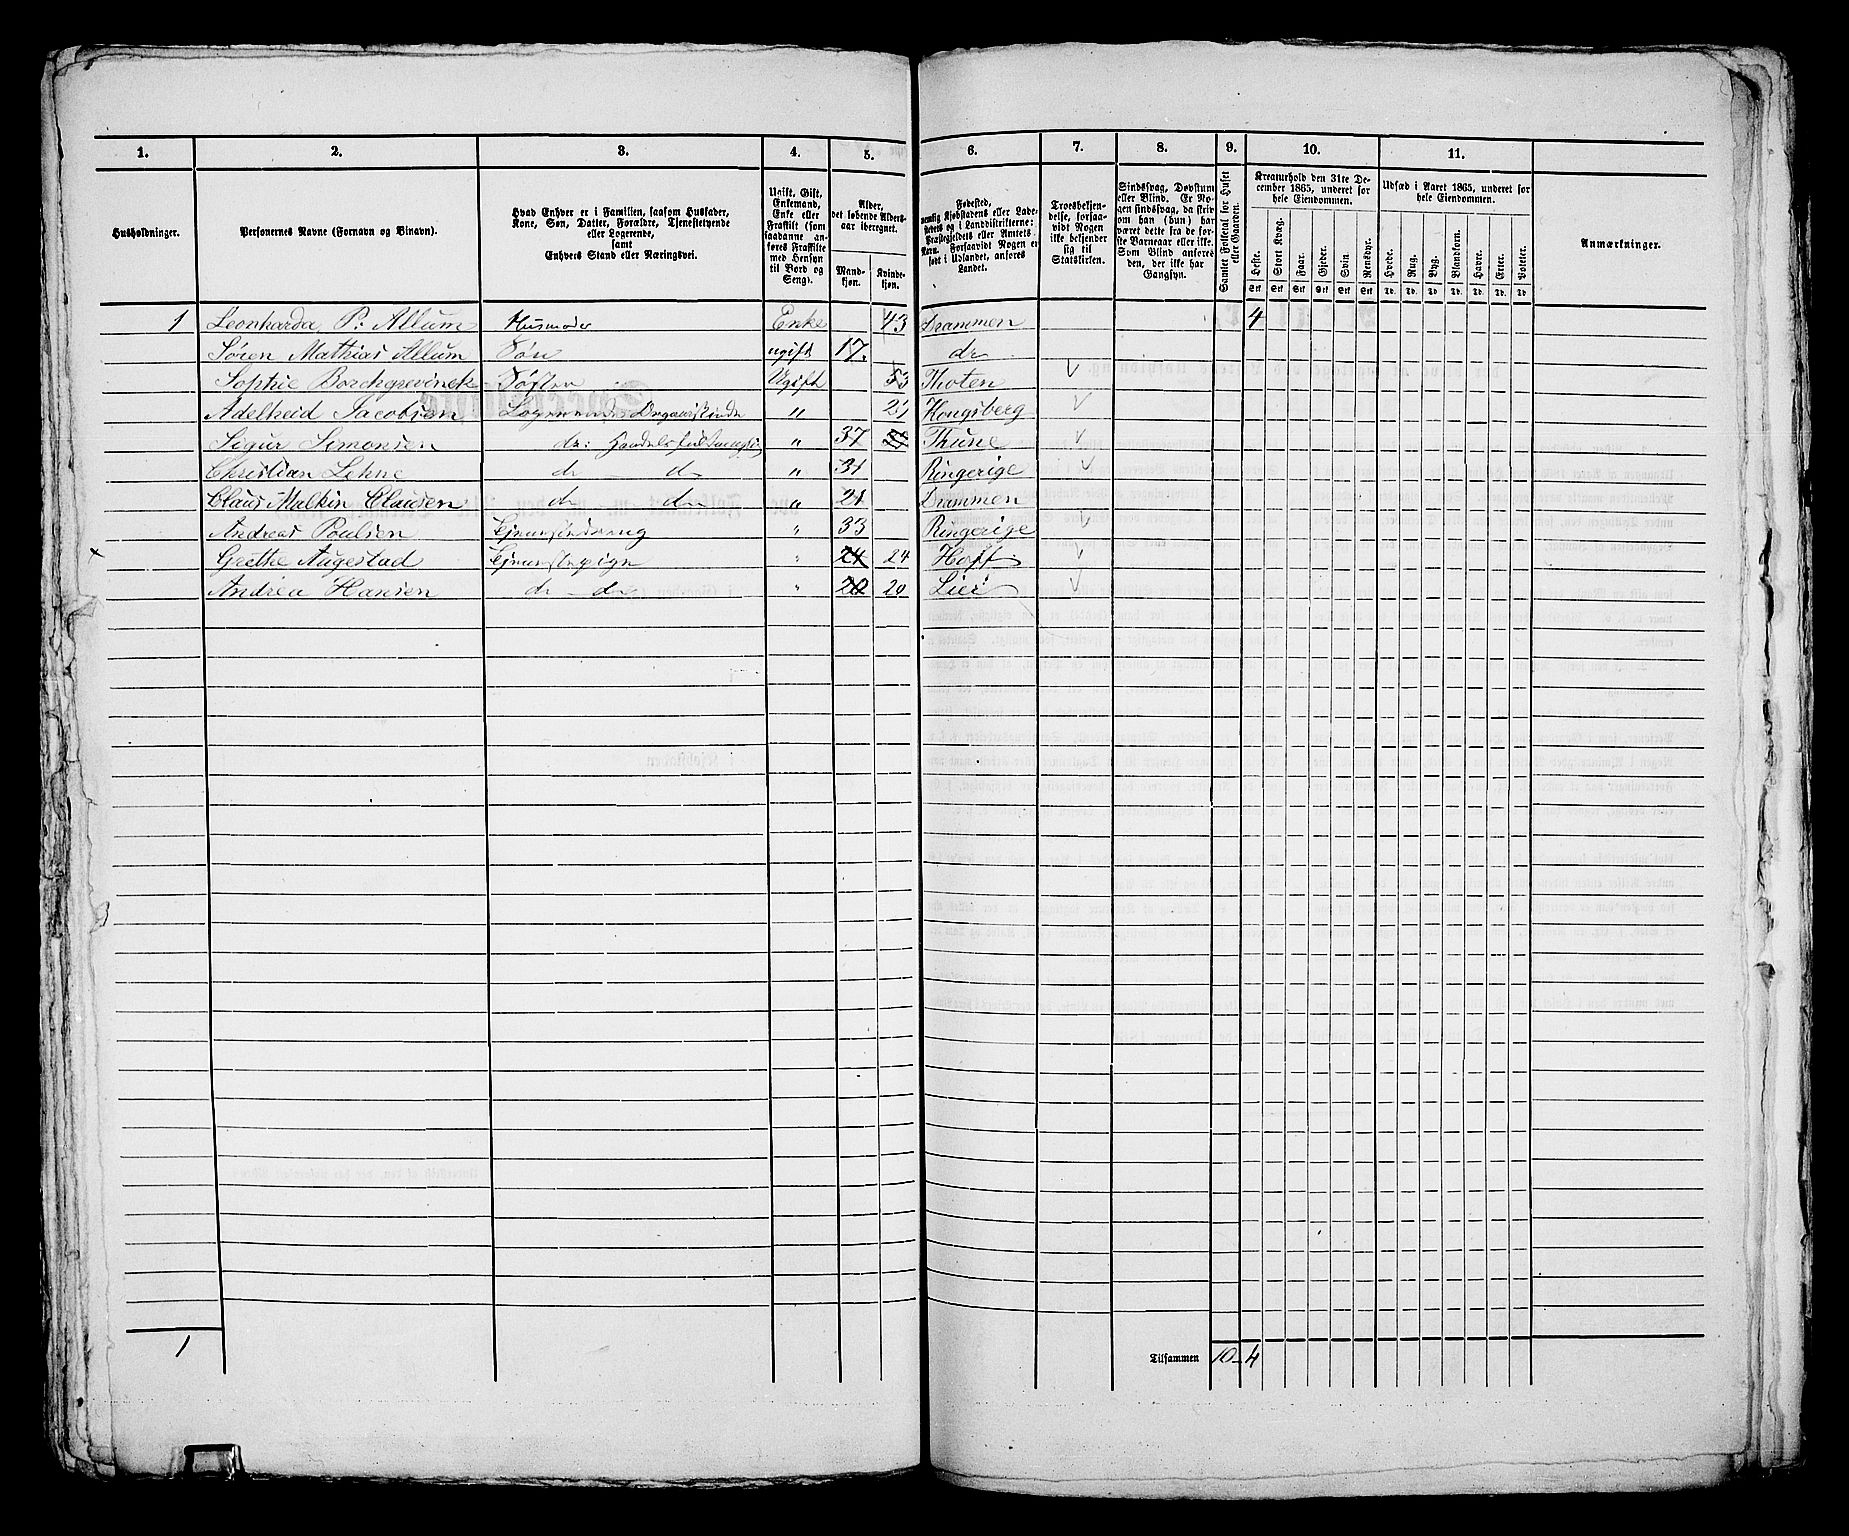 1. 2. 3. 4. 5. 6. 7. 8. 9. 10. 11.
Husholdninger.
Personernes Navne (Fornavn og Binavn).
Hvad Enhver er i Familien, saasom Husfader,
Kone, Søn, Datter, Forældre, Tjenestetyende
eller Logerende,
samt
Enhvers Stand eller Næringsvei.
Ugift, Gift,
Enkemand,
Enke eller
Fraskilt (som
saadanne an-
føres Fraskilte
med Hensyn
til Bord og
Seng).
Alder,
det løbende Alders-
aar iberegnet.
Mand-
kjøn.
Kvinde-
kjøn.
Fødested,
nemlig Kjøbstadens eller Lade-
stedets og i Landdistrikterne:
Præstegjeldets eller Amtets
Navn. Forsaavidt Nogen er
født i Udlandet, anføres
Landet.
Troesbekjen-
delse, forsaa-
vidt Nogen
ikke bekjender
sig til
Statskirken.
Sindssvag, Døvstum
eller Blind. Er No-
gen sindssvag, da skriv
om han (hun) har
været dette fra de før-
ste Barneaar eller ikke.
Som Blind anføres
den, der ikke har
Gangsyn.
Samlet Folketal for Huset
eller Gaarden.
Kreaturhold den 31te De-
cember 1865, underet for
hele Eiendommen.
Heste. Stort Kvæg. Faar. Gjeder. Svin. Rensdyr.
Stk Stk Stk Stk Stk Stk
Udsæd i Aaret 1865, underet for
hele Eiendommen.
Hvede. Rug. Byg. Blandkorn. Havre. Erter. Poteter.
Td. Td. Td Td. Td. Td. Td
Anmærkninger.
1 Leonharda P: Allum Husmoder Enke 43 Drammen 4
Søren Mathias Allum Søn ugift 17. do
Sophie Borchgrevinck Søster Ugift 53 Thoten
Adelheid Jacobsen Logerende 21 Kongsberg
Sigur Simonsen do: Handelsfuldmægtig " 37 Thune
Christian Lehne do do " 31 Ringerige
Claus Malkin Clausen do do " 21 Drammen
Andreas Poulsen " 33 Ringerige
Grethe Augestad Tjenestepige " 24 24 Hoff
Andrea Hansen do do " 20 20 Lier
1
Tilsammen 10 4